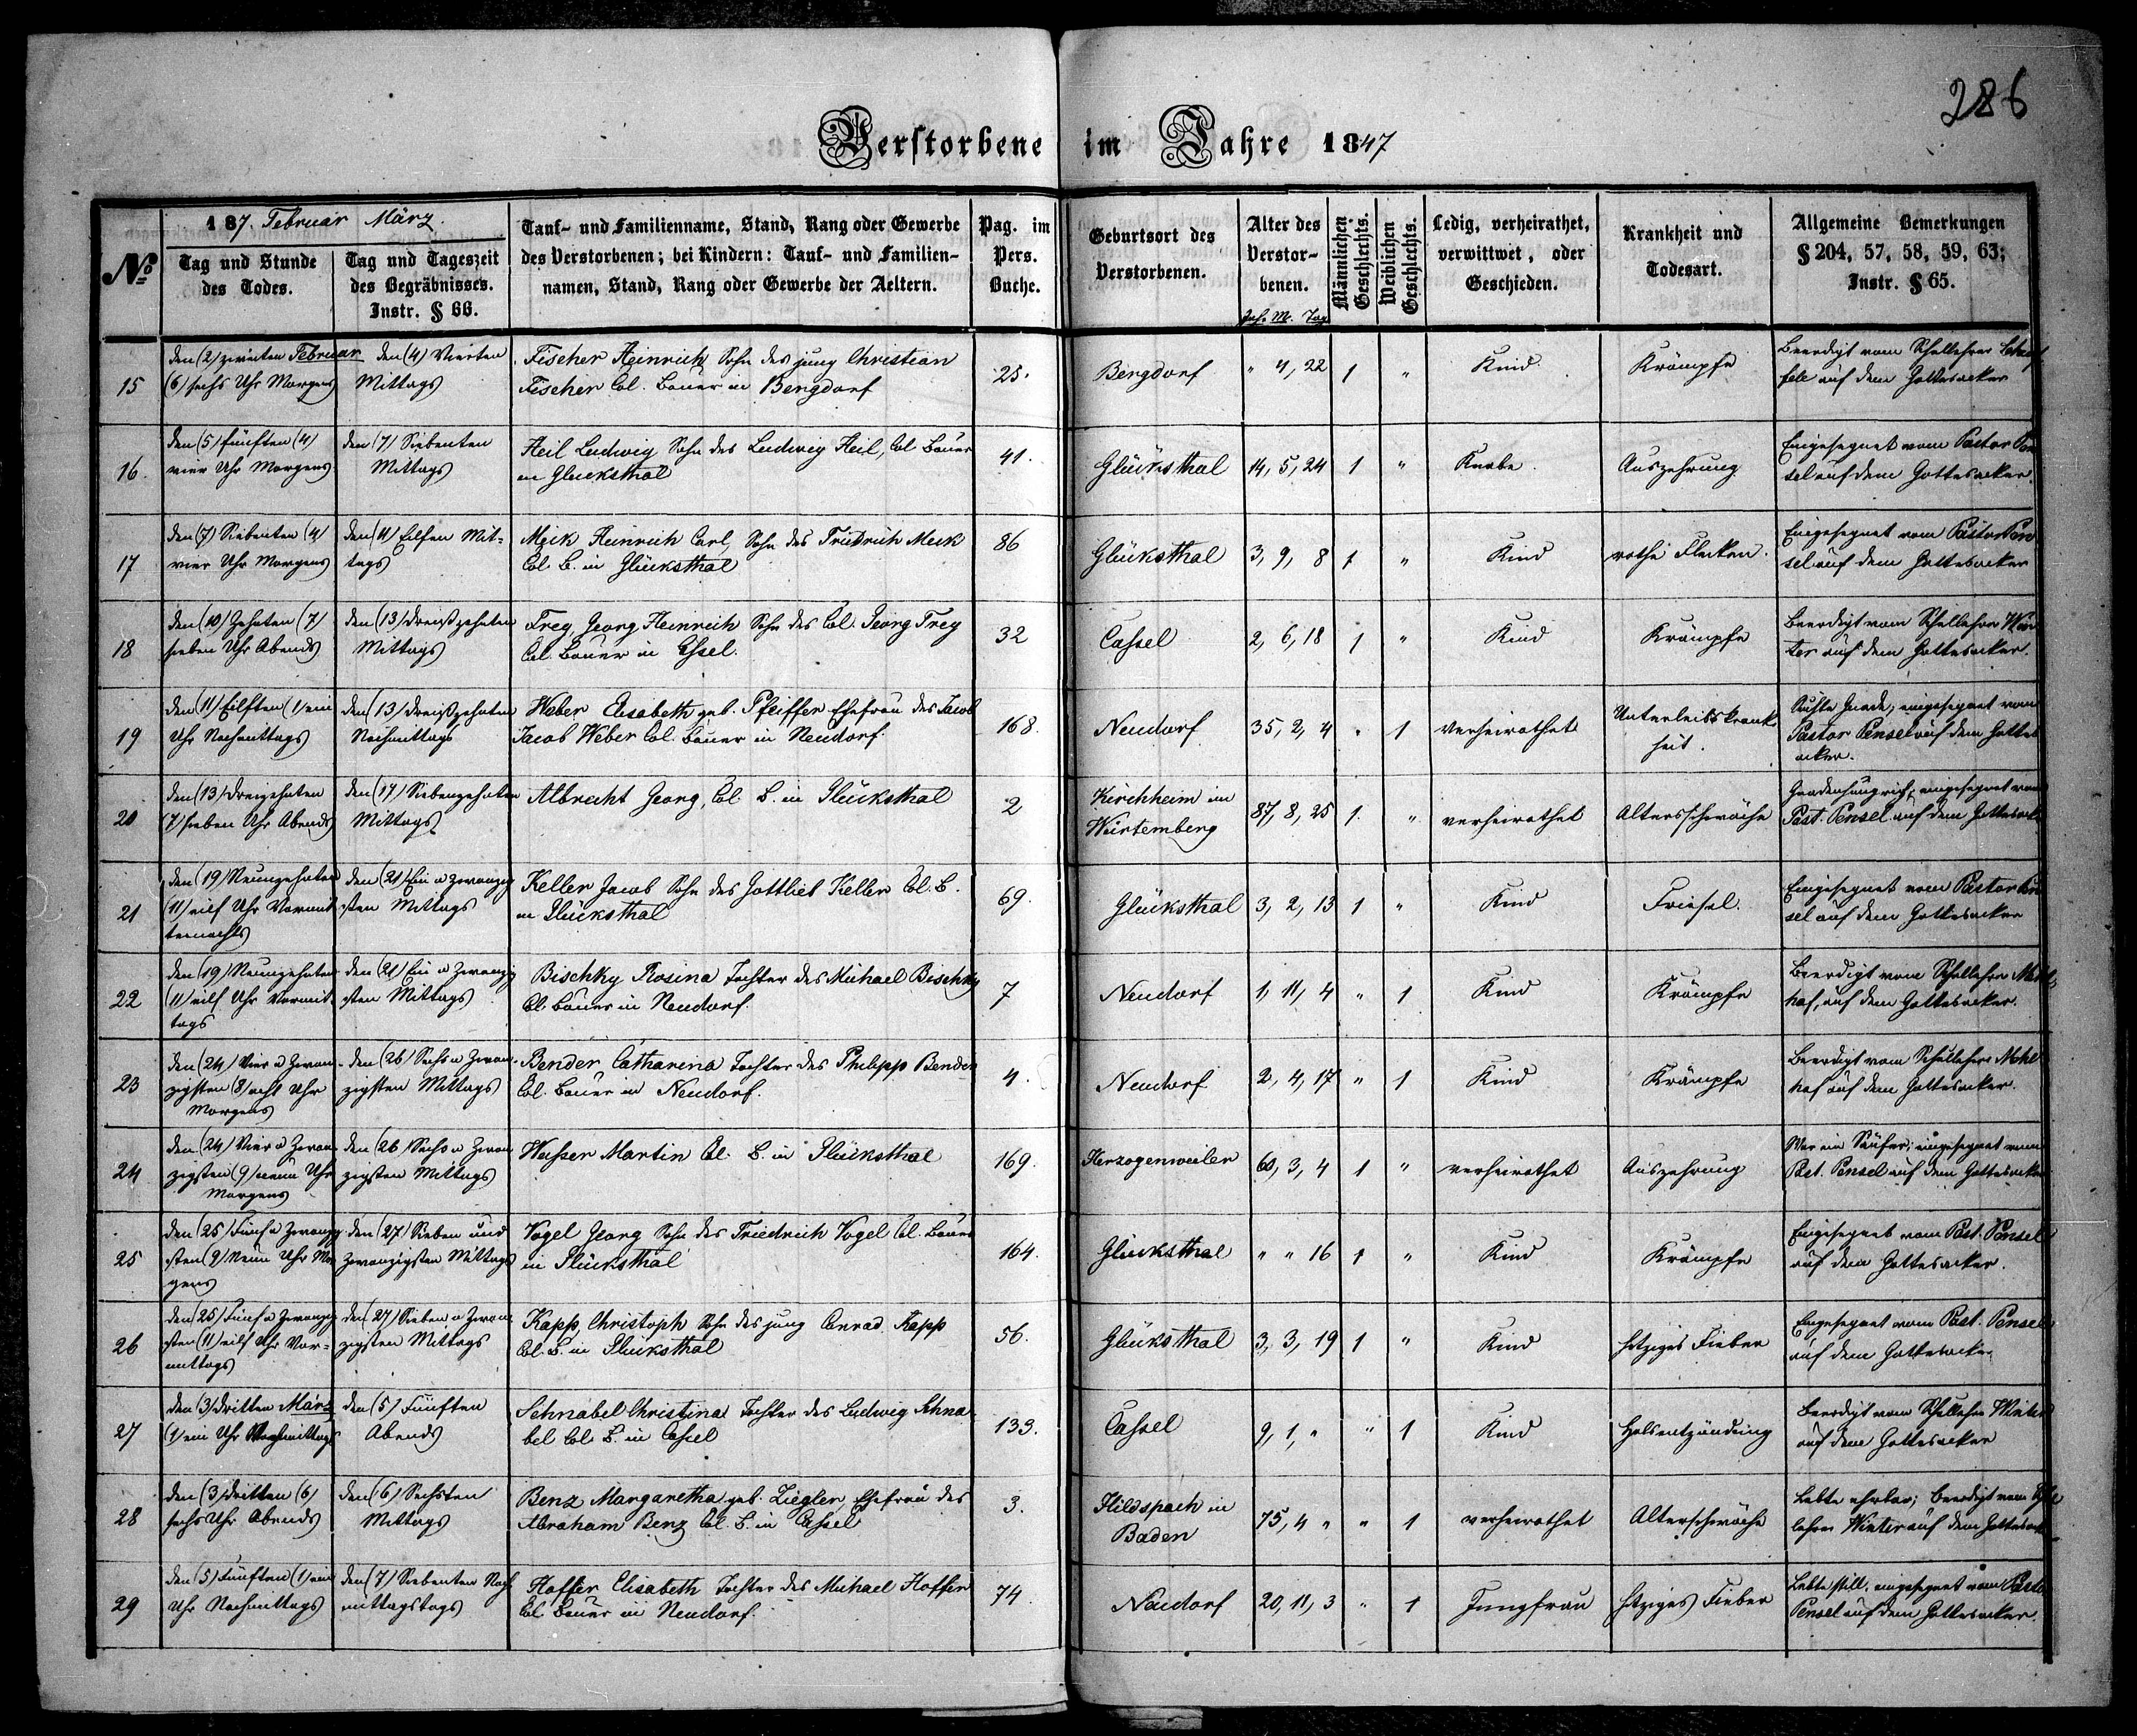 286
Verstorbene im Jahre 1847
№
187. Februar März.
Tag und Stunde
des Todes.
Tag und Tageszeit
des Begräbnisses.
Instr. § 66.
Tauf- und Familienname, Stand, Rang oder Gewerbe
des Verstorbenen; bei Kindern: Tauf- und Familien-
namen, Stand, Rang oder Gewerbe der Aeltern.
Pag. im
Pers.
Buche.
Geburtsort des
Verstorbenen.
Alter des
Verstor-
benen.
Jah. M. Tag
Männlichen
Geschlechts.
Weiblichen
Geschlechts.
Ledig, verheirathet,
verwittwet, oder
Geschieden.
Krankheit und
Todesart.
Allgemeine Bemerkungen
§ 204, 57, 58, 59, 63;
Instr. § 65.
15
den (2) zweiten Februar
(6) sechs Uhr Morgens
den (4) Vierten
Mittags
Fischer Heinrich Sohn des jung Christian
Fischer Col. Bauer in Bergdorf
25.
Bergdorf
" 4, 22
1
"
Kind
Krämpfe
Beerdigt vom Schullehrer
auf dem Gottesacker
16.
den (5) fünften (4)
vier Uhr Morgens
den (7) Siebenten
Mittags
Heil Ludwig Sohn des Ludwig Heil, Col Bauer
in Glücksthal
41.
Glücksthal
14, 5, 24
1
"
Knabe.
Auszehrung
Eingesegnet vom Pastor Pen
sel auf dem Gottesacker.
17
den (7) Siebenten (4)
vier Uhr Morgens
den (11) Eilften Mit-
tags
Meik Heinrich Carl, Sohn des Friedrich Meik
Col. B. in Glücksthal
86
Glücksthal
3, 9, 8
1
"
Kind
rothe Flecken.
Eingesegnet vom Pastor Pen
sel auf dem Gottesacker
18
den (10) Zehnten (7)
sieben Uhr Abends
den (13) dreißzehnten
Mittags
Frey, Georg Heinrich Sohn des Col. Georg Frey
Col. Bauer in Cassel.
32
Cassel
2, 6, 18
1
"
Kind
Krämpfe
Beerdigt vom Schullehrer Win
ter auf dem Gottesacker.
19
den (11) Eilften (1) ein
Uhr Nachmittags
den (13) dreißzehnten
Nachmittags
Weber Elisabeth geb. Pfeiffer Ehefrau des Jacob
Jacob Weber Col. Bauer in Neudorf.
168.
Neudorf
35, 2, 4
"
1
verheirathet
Unterleibskrank
heit.
Suchte Gnade; eingesegnet vom
Pastor Pensel auf dem Gottes
acker.
20
den (13) dreizehnten
(7) sieben Uhr Abends
den (17) Siebenzehnten
Mittags
Albrecht Georg, Col. B. in Glücksthal
2
Kirchheim im
Würtemberg
87, 8, 25
1.
"
verheirathet
Altersschwäche
Gnadenhungrig; eingesegnet vom
Past. Pensel auf dem Gottesack
21
den (19) Neunzehnten
(11) eilf Uhr
ternachts
den (21) Ein u Zwanzig
sten Mittags
Keller Jacob Sohn des Gottlieb Keller Col. B.
in Glücksthal
69.
Glücksthal
3, 2, 13
1
"
Kind
Friesel.
Eingesegnet vom Pastor Pen
sel auf dem Gottesacker
22
den (19) Neunzehnten
(11) eilf Uhr Vormit
tags
den (21) Ein u Zwanzig
sten Mittags
Bischky Rosina Tochter des Michael Bischky
Col. Bauer in Neudorf.
7
Neudorf
1, 11, 4
"
1
Kind
Krämpfe
Beerdigt vom Schullehrer Mohl
hof, auf dem Gottesacker.
23
den (24) Vier u Zwan
zigsten (8) acht Uhr
Morgens
den (26) Sechs u Zwan-
zigsten Mittags
Bender Catharina Tochter des Philipp Bender
Col. Bauer in Neudorf.
4.
Neudorf
2, 4, 17
"
1
Kind
Krämpfe
Beerdigt vom Schullehrer Mohl
hof auf dem Gottesacker.
24
den (24) Vier u Zwan
zigsten (9) neun Uhr
Morgens
den (26) Sechs u Zwan
zigsten Mittags
Weißer Martin Col. B. in Glücksthal
169.
Herzogenweiler
60, 3, 4
1
"
verheirathet
Auszehrung
War ein Säufer; eingesegnet vom
Past. Pensel auf dem Gottesacker
25
den (25) Fünf u Zwanzig
sten (9) Neun Uhr Mor
gens
den (27) Sieben und
zwanzigsten Mittags
Vogel Georg Sohn des Friedrich Vogel Col. Bauer
in Glücksthal
164.
Glücksthal
" " 16
1
"
Kind
Krämpfe
Eingesegnet vom Past. Pensel
auf dem Gottesacker.
26
den (25) Fünf u Zwanzig
sten (11) eilf Uhr Vor-
mittags
den (27) Sieben u Zwan
zigsten Mittags
Kapp Christoph Sohn des jung Conrad Kapp
Col. B. in Glücksthal
56.
Glücksthal
3, 3, 19
1
"
Kind
hitziges Fieber
Eingesegnet vom Past. Pensel
auf dem Gottesacker
27
den (3) dritten März
(1) ein Uhr Nachmittags
den (5) Fünften
Abends
Schnabel Christina Tochter des Ludwig Schna-
bel Col. B. in Cassel
133.
Cassel
9, 1, "
"
1
Kind
Halsentzündung
Beerdigt vom Schullehrer Winter
auf dem Gottesacker
28
den (3) dritten (6)
sechs Uhr Abends
den (6) Sechsten
Mittags
Benz Margaretha geb. Ziegler Ehefrau des
Abraham Benz Col. B. in Cassel
3.
Hildspach in
Baden
75, 4 "
"
1
verheirathet
Altersschwäche
Lebte ehrbar; beerdigt vom Schul
lehrer Winter auf dem Gottesack
29
den (5) Fünften (1) ein
Uhr Nachmittags
den (7) Siebenten Nach
mittagstags
Hoffer Elisabeth Tochter des Michael Hoffer
Col. Bauer in Neudorf.
74.
Neudorf
20, 11, 3
"
1
Jungfrau
hitziges Fieber
Lebte still, eingesegnet vom Pastor
Pensel auf dem Gottesacker.